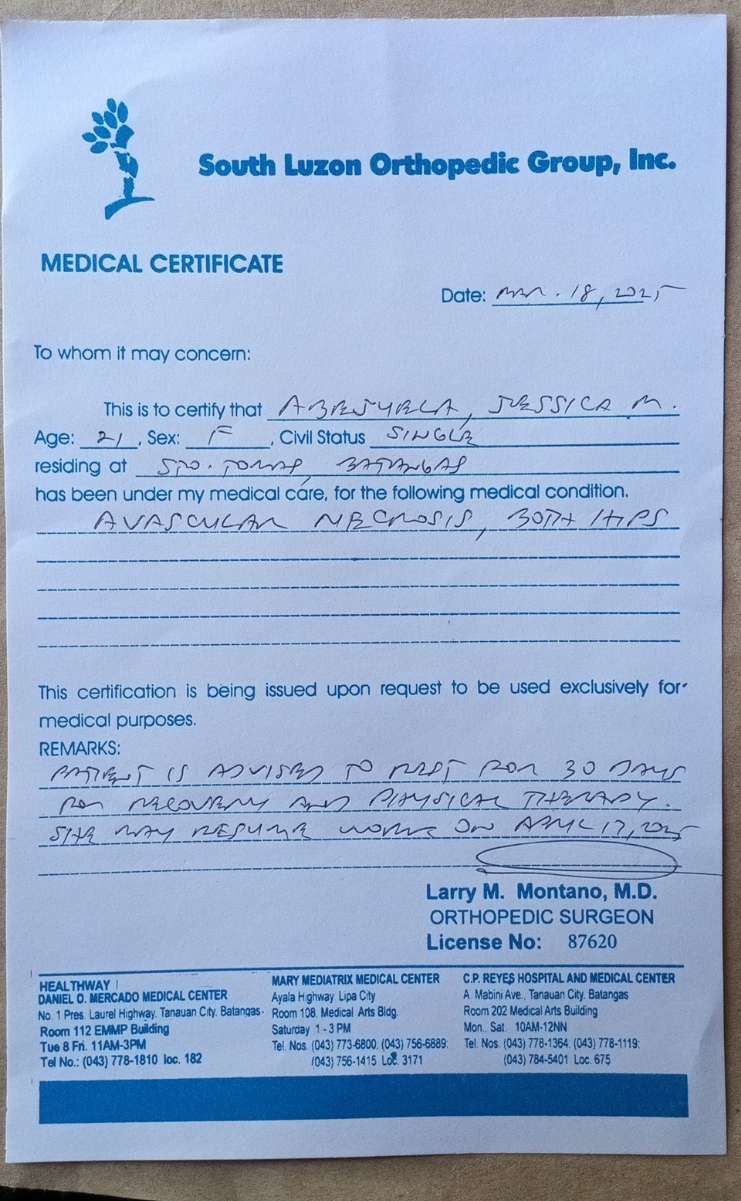 South Luzon Orthopedic Group, Inc.
MEDICAL CERTIFICATE
Date: MAR. 18, 2025
To whom it may concern:
This is to certify that JESSICA M.
Age: 21, Sex: F, Civil Status SINGLE
residing at STO. TOMAS, BATANGAS
has been under my medical care, for the following medical condition.
AVASCULAR NECROSIS, BOTH HIPS
This certification is being issued upon request to be used exclusively for
medical purposes.
REMARKS:
PATIENT IS ADVISED TO REST FOR 30 DAYS
FOR RECOVERY AND PHYSICAL THERAPY.
SHE MAY RESUME WORK ON APRIL 17, 2025
Larry M. Montano, M.D.
ORTHOPEDIC SURGEON
License No: 87620
HEALTHWAY
DANIEL O. MERCADO MEDICAL CENTER
No. 1 Pres. Laurel Highway, Tanauan City, Batangas
Room 112 EMMP Building
Tue & Fri. 11AM-3PM
Tel No.: (043) 778-1810 loc. 182
MARY MEDIATRIX MEDICAL CENTER
Ayala Highway Lipa City
Room 108, Medical Arts Bldg.
Saturday 1 - 3 PM
Tel. Nos. (043) 773-6800, (043) 756-6889;
(043) 756-1415 Loc. 3171
C.P. REYES HOSPITAL AND MEDICAL CENTER
A. Mabini Ave., Tanauan City, Batangas
Room 202 Medical Arts Building
Mon., Sat. 10AM-12NN
Tel. Nos. (043) 778-1364, (043) 778-1119;
(043) 784-5401 Loc. 675